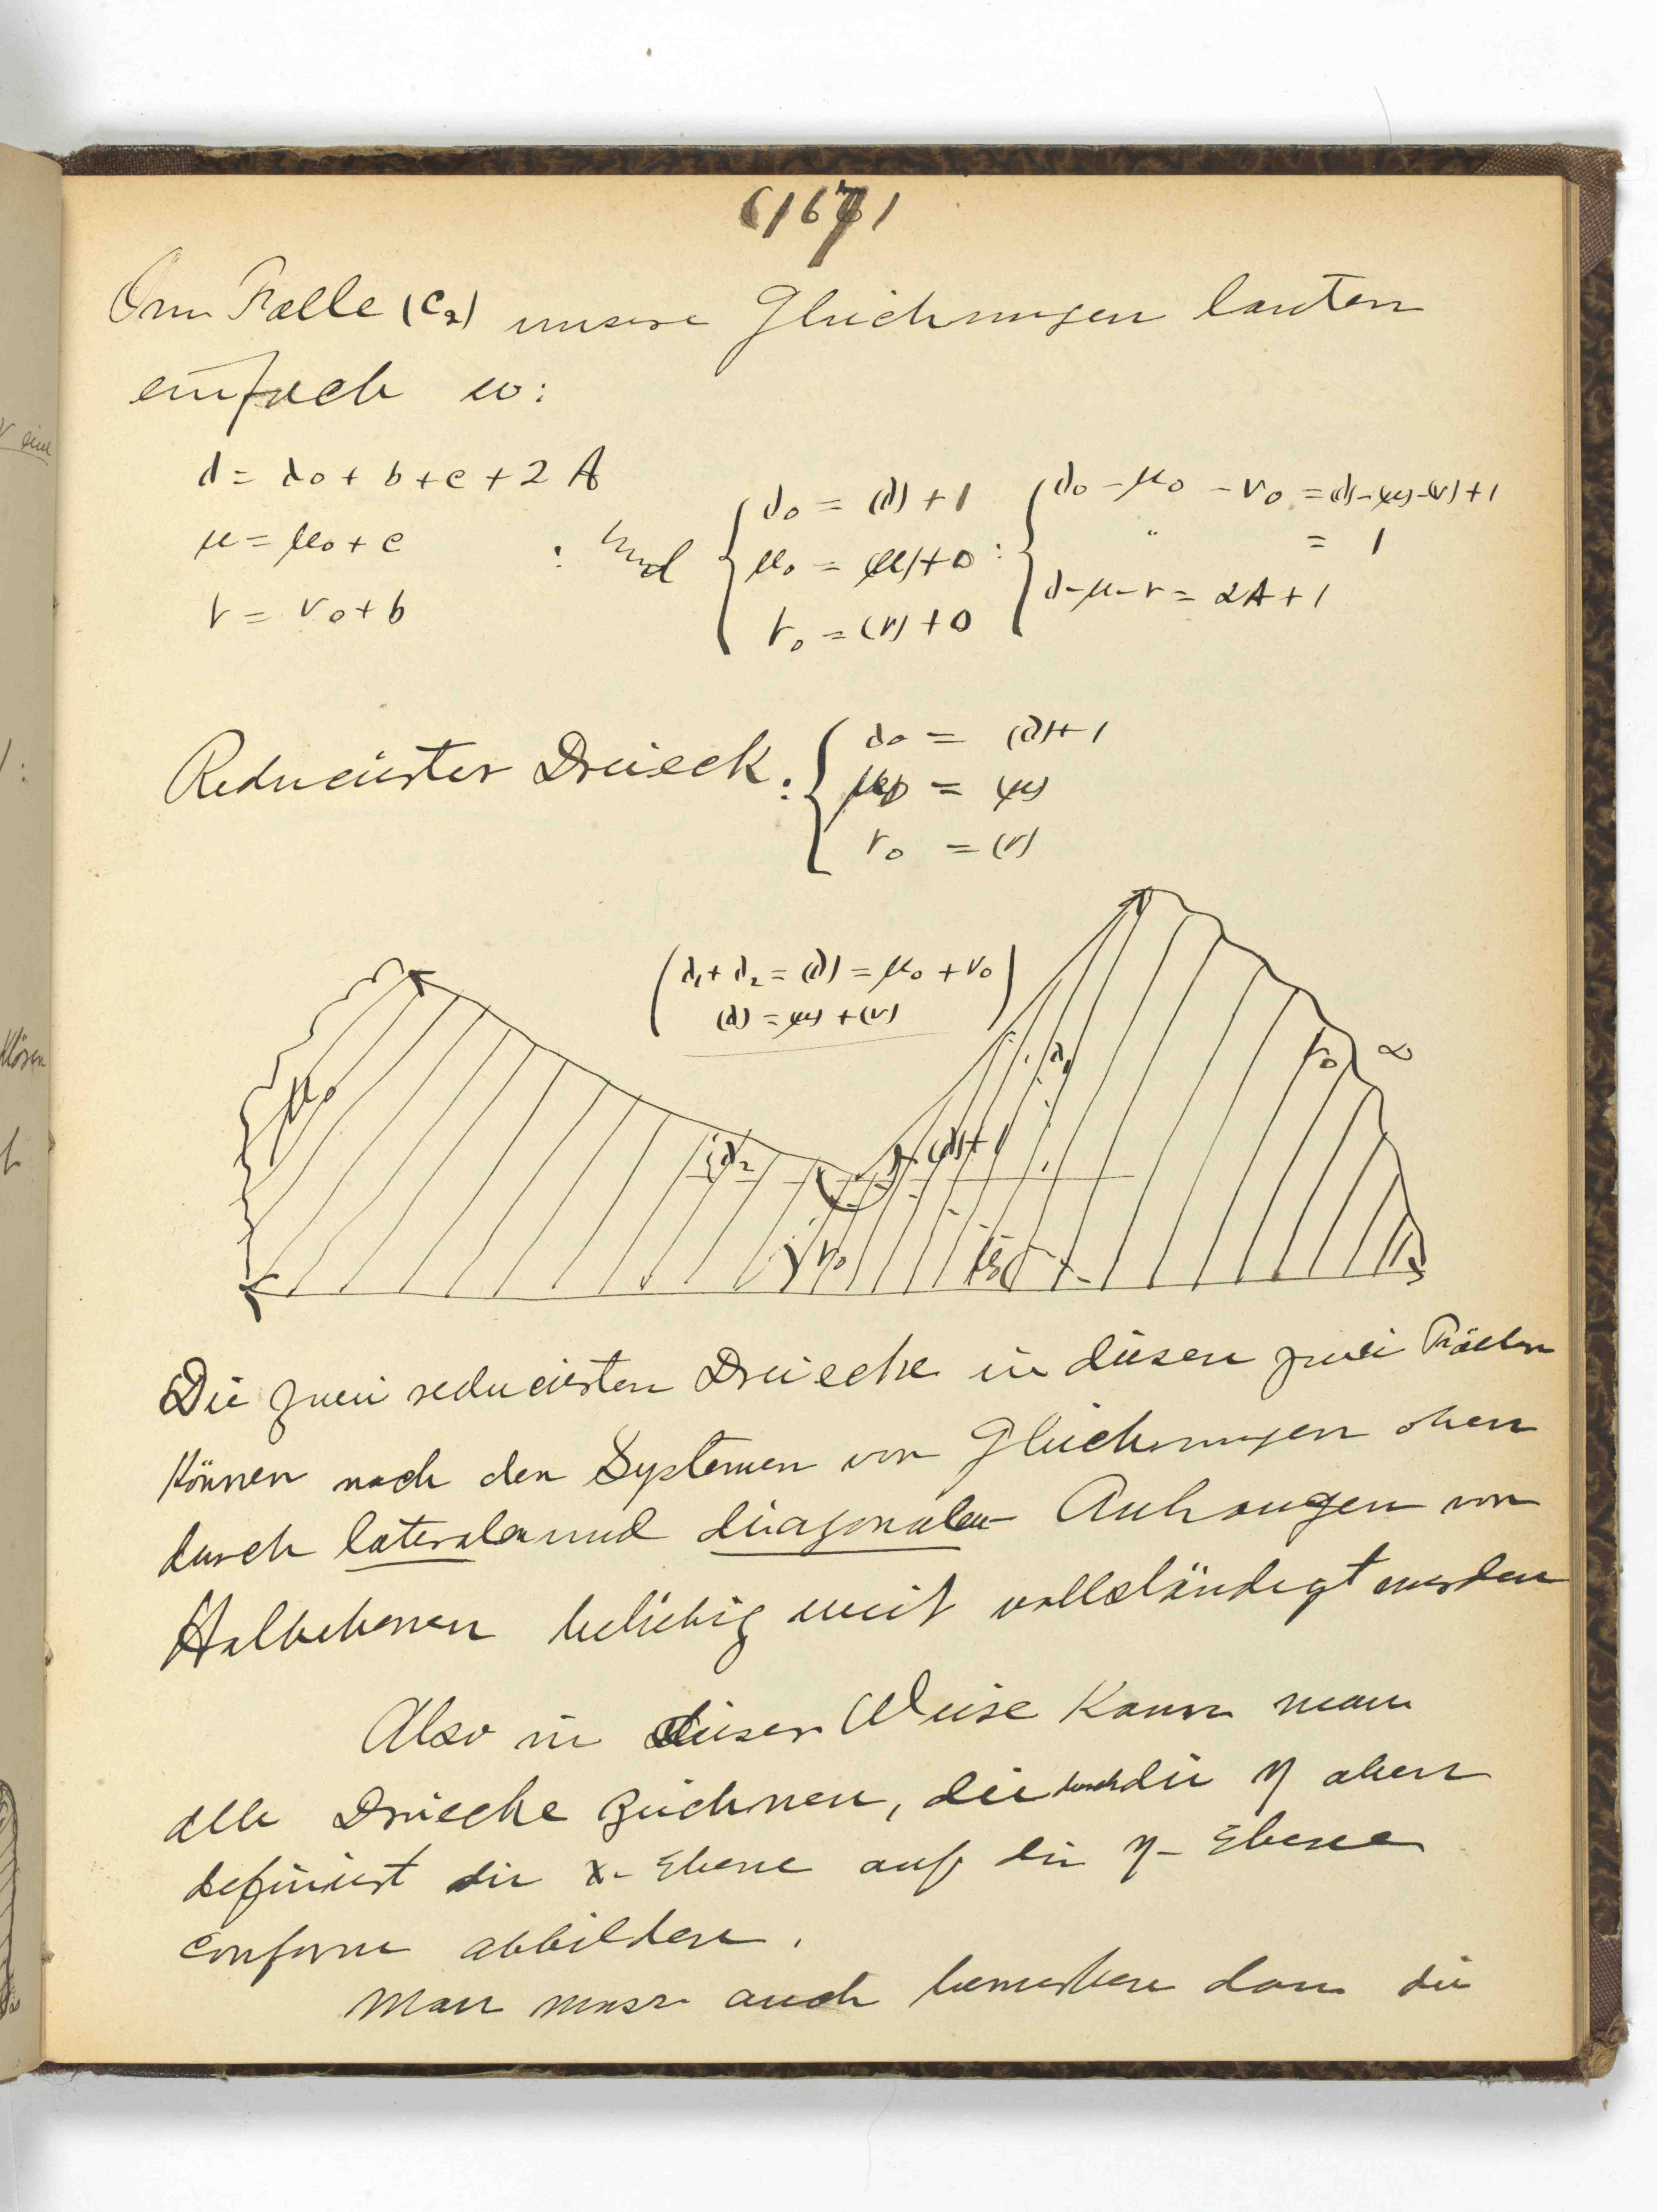 (167)
Im Falle (C2) unsere Gleichungen lauten
einfach so:
λ = λ0 + b + c + 2A
μ = μ0 + c
ν = ν0 + b
: und { λ0 = (λ) + 1
μ0 = (μ) + 0 :
ν0 = (ν) + 0
{ λ0 - μ0 - ν0 = (λ) - (μ) - (ν) + 1
" = 1
λ - μ - ν = 2A + 1
Reducierter Dreieck : { λ0 = (λ) + 1
μ0 = (μ)
ν0 = (ν)
(λ1 + λ2 = (λ) = μ0 + ν0)
(λ) = (μ) + (ν)
μ0
λ1
ν0 ∞
λ2
(λ)+1
ν0
Die zwei reducierten Dreiecke in diesen zwei Fällen
können nach den Systemen von Gleichungen oben
durch lateralen und diagonalen Anhangen von
Halbebenen beliebig weit vollständigt werden
Also in dieser Weise kann man
alle Dreiecke zeichnen, die durch die η oben
definiert die x-Ebene auf die η-Ebene
conform abbilden.
Man muss auch bemerken dass die